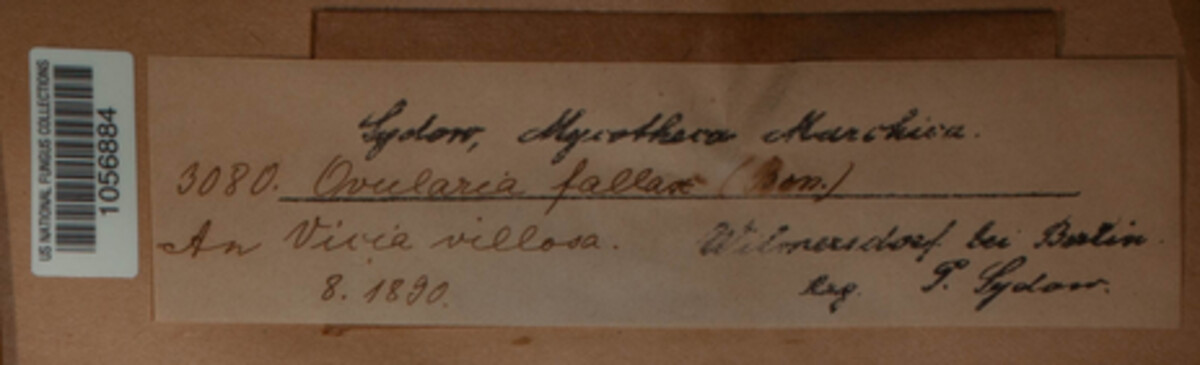 US NATIONAL FUNGUS COLLECTIONS
1056884
Sydow, Mycotheca Marchica.
3080. Ovularia fallax (Bon.)
An Vicia villosa. Wilmersdorf bei Berlin.
8. 1890. leg. P. Sydow.